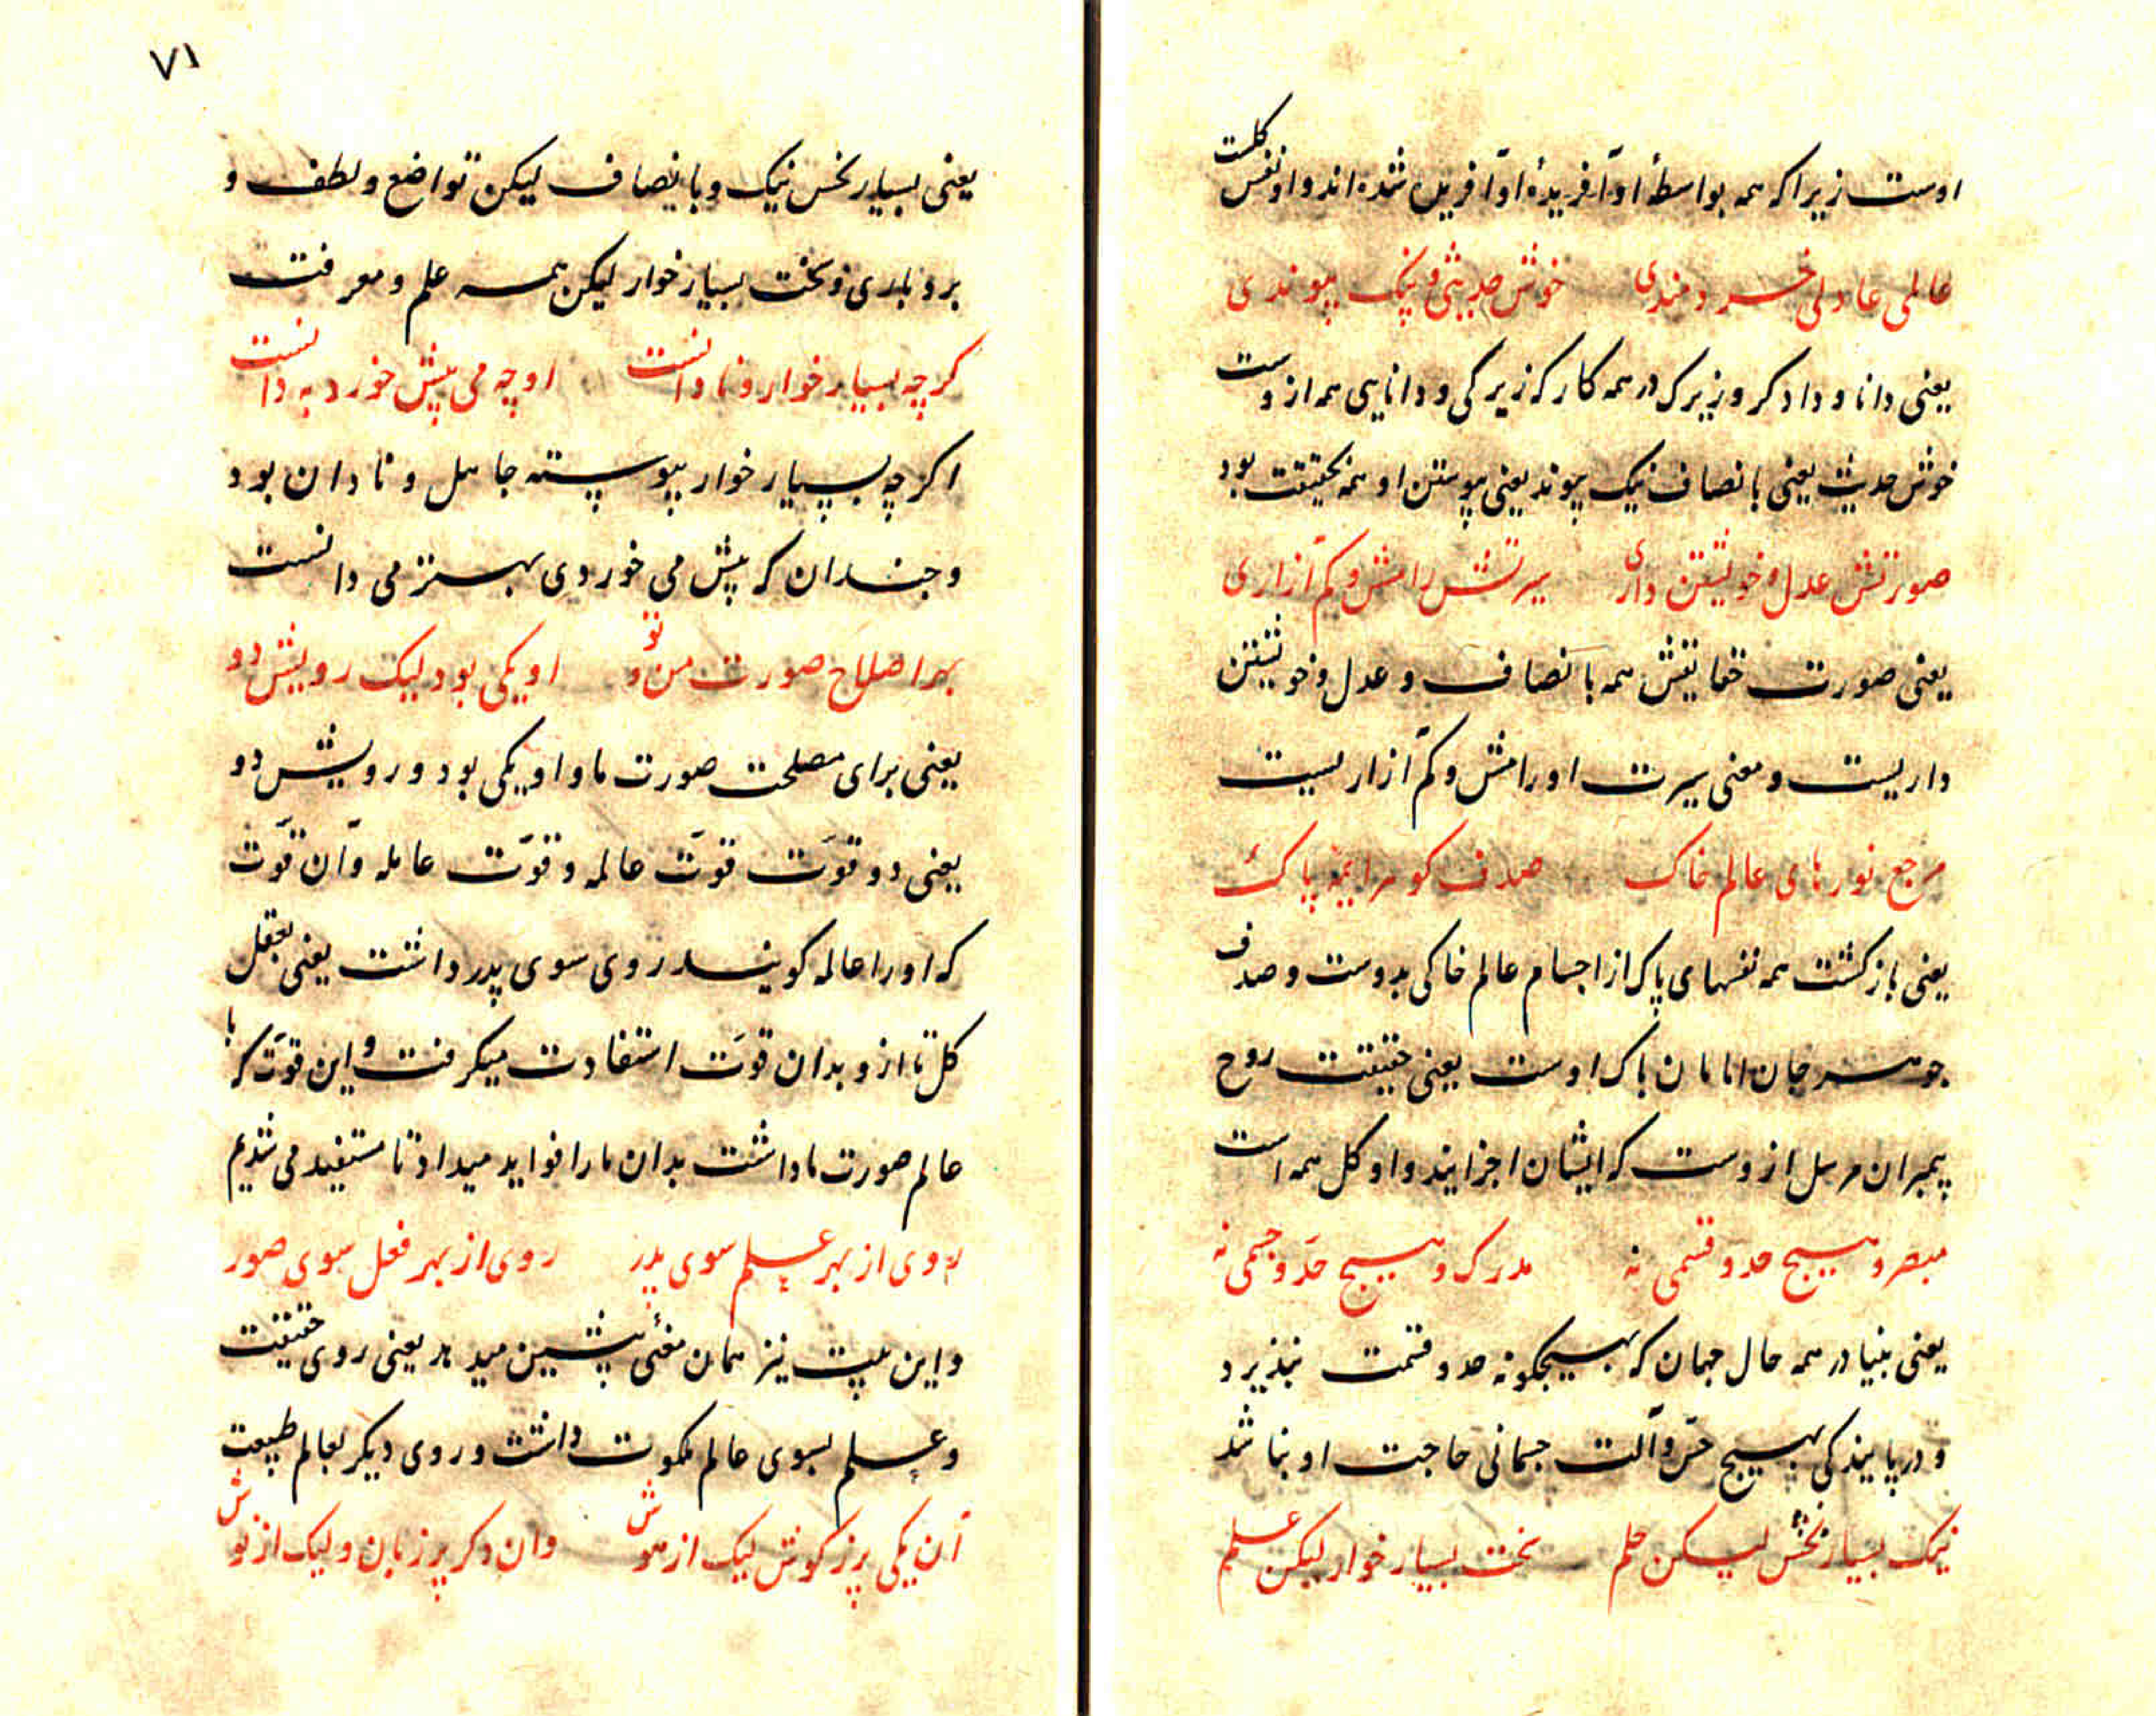 اوست زیرا که همه بواسطهٔ او آفریدهٔ او آفریده شده‌اند و او نفس کلست
عالمی عادلی خردمندی خوش حدیثی و نیک پیوندی
یعنی دانا و دادکر و زیرک در همه کار که زیرکی و دانایی همه ازوست
خوش حدیث یعنی بانصاف نیک پیوند یعنی پیوستن او همه بحقیقت بود
صورتش عدل و خویشتن داری سیرتش رامش و کم آزاری
یعنی صورت حقایقش همه بانصاف و عدل و خویشتن
داریست و معنی سیرت او رامش و کم آزاریست
مرجع نورهای عالم خاک صدف کوهر ایمهٔ پاک
یعنی بازکشت همه نفسهای پاک از اجسام عالم خاکی بدوست و صدف
جوهر جان امامان پاک اوست یعنی حقیقت روح
پیمبران مرسل ازوست که ایشان اجزایند و او کل همه است
مبصر و هیچ حد و قسمی نه مدرک و هیچ حدّ و جسمی نه
یعنی بینا در همه حال جهان که بهیچکونه حد و قسمت نپذیرد
و در یابندکی بهیچ حسّ و آلت جسمانی حاجت او نباشد
نیک بسیار بخش لیکن حلم سخت بسیار خوار لیکن علم
۷۱
یعنی بسیار بخش نیک و بانصاف لیکن تواضع و لطف و
بردباری و سخت بسیار خوار لیکن همه علم و معرفت
کرچه بسیار خوار و نادانست او چه می بیش خورد به دانست
اکرچه بسیار خوار پیوسته جاهل و نادان بود
و چندان که بیش می خوردی بهتر می دانست
بهر اصلاح صورت من و تو او یکی بود لیک رویش دو
یعنی برای مصلحت صورت ما و او یکی بود و رویش دو
یعنی دو قوّت قوّت عالمه و قوّت عامله و آن قوّت
که او را عالمه کویند روی سوی پدر داشت یعنی بعقل
کل تا ازو بدان قوّت استفادت میکرفت و این قوّت که با
عالم صورت ما داشت بدان ما را فواید میداد تا مستفید می شدیم
روی از بهر علم سوی پدر روی از بهر فعل سوی صور
و این بیت نیز همان معنیٔ پیشین میدهد یعنی روی حقیقت
و علم بسوی عالم ملکوت داشت و روی دیکر بعالم طبیعت
آن یکی پر ز کوش لیک از هوش وان دکر پر زبان ولیک از نوش